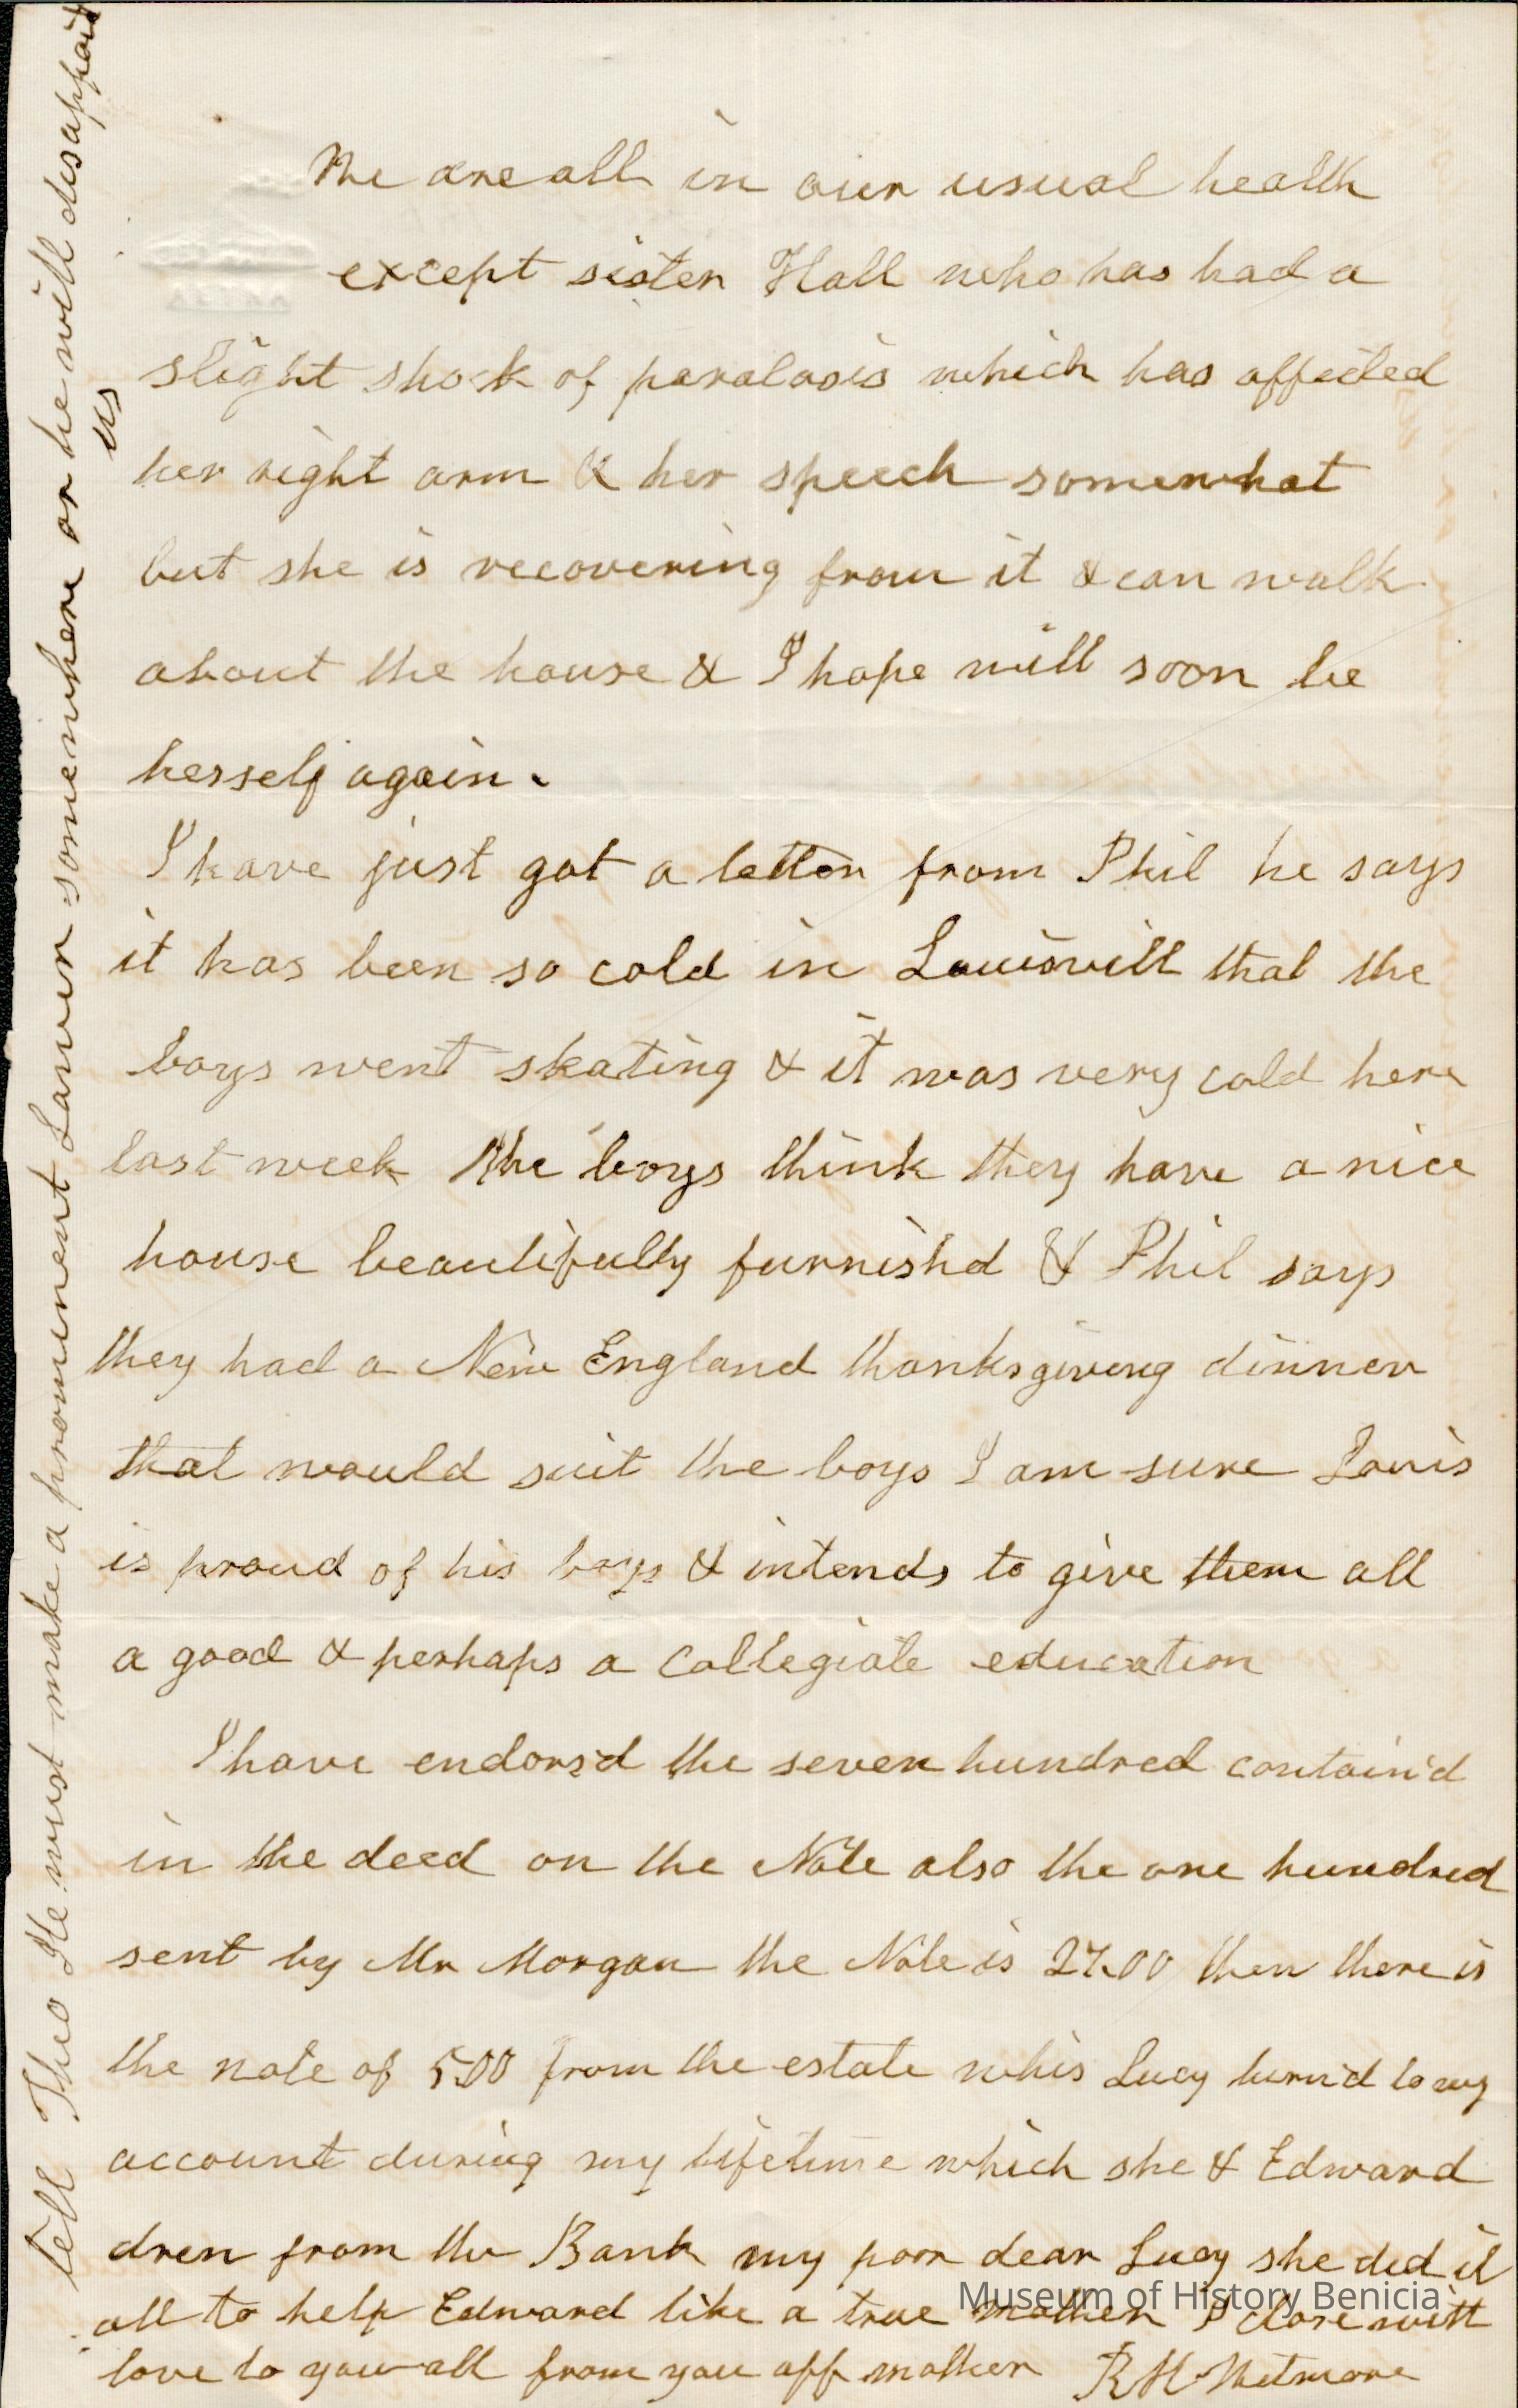 We are all in our usual health
except sister Hall who has had a
slight shock of paralasis which has affected
her right arm & her speech somewhat
but she is recovering from it & can walk
about the house & I hope will soon be
herself again.
I have just got a letter from Phil he says
it has been so cold in Louisvill that the
boys went skating & it was very cold here
last week The boys think they have a nice
house beautifully furnishd & Phil says
they had a New England thanksgiving dinner
that would suit the boys I am sure Louis
is proud of his boys & intends to give them all
a good & perhaps a Collegiate education
I have endors'd the seven hundred contain'd
in the deed on the Note also the one hundred
sent by Mr Morgan the Note is 27.00 then there is
the note of 500 from the estate whis Lucy turn'd to my
account during my lifetime which she & Edward
dren from the Bank my poor dear Lucy she did it
all to help Edward like a true mother I close with
love to you all from you aff mother R H Whitmore
tell Theo He must make a prominent Lawer somewhere or he will disappoint
us
Museum of History Benicia